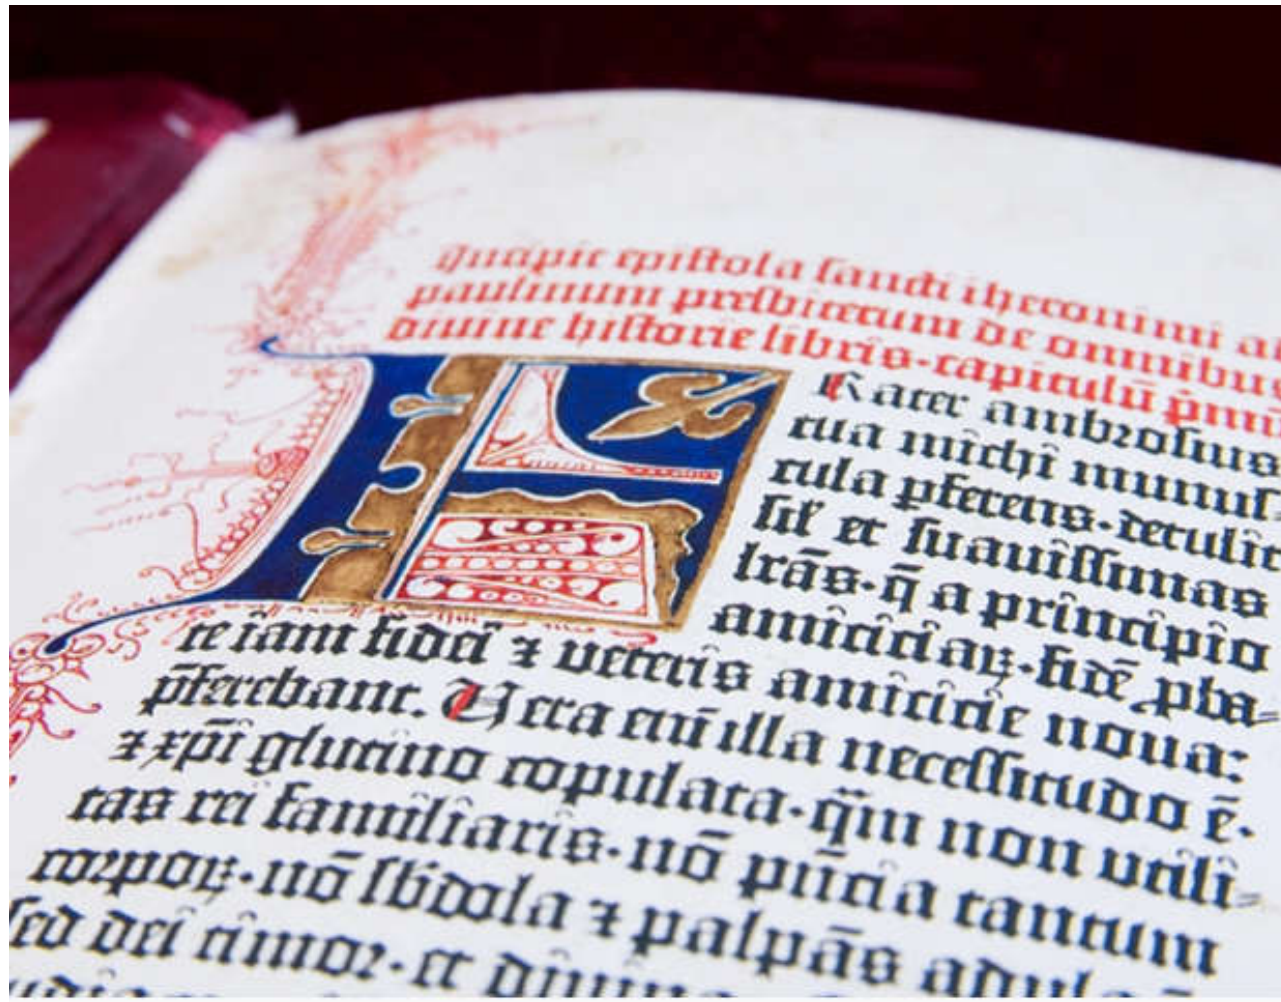 Incipit epistola sancti iheronimi a
paulinum presbiterum de omnibus
divine historie libris·capitulū p̄mū
FRater ambrosius
tua michi munus
cula ꝑferens·detulit
sil' et suavissimas
lrās·q̄ a principio
amiciciaꝝ·fidē ꝓba⸗
te iam fidei ⁊ veteris amicicie nova:
p̄ferebant. Vera enī illa necessitudo ē·
⁊ xp̄i glutino copulata·qm̄ non utili⸗
tas rei familiaris·nō pn̄cia tantum
corpoꝝ·nō sbdola ⁊ palpās adula
sed dei timor·et divina